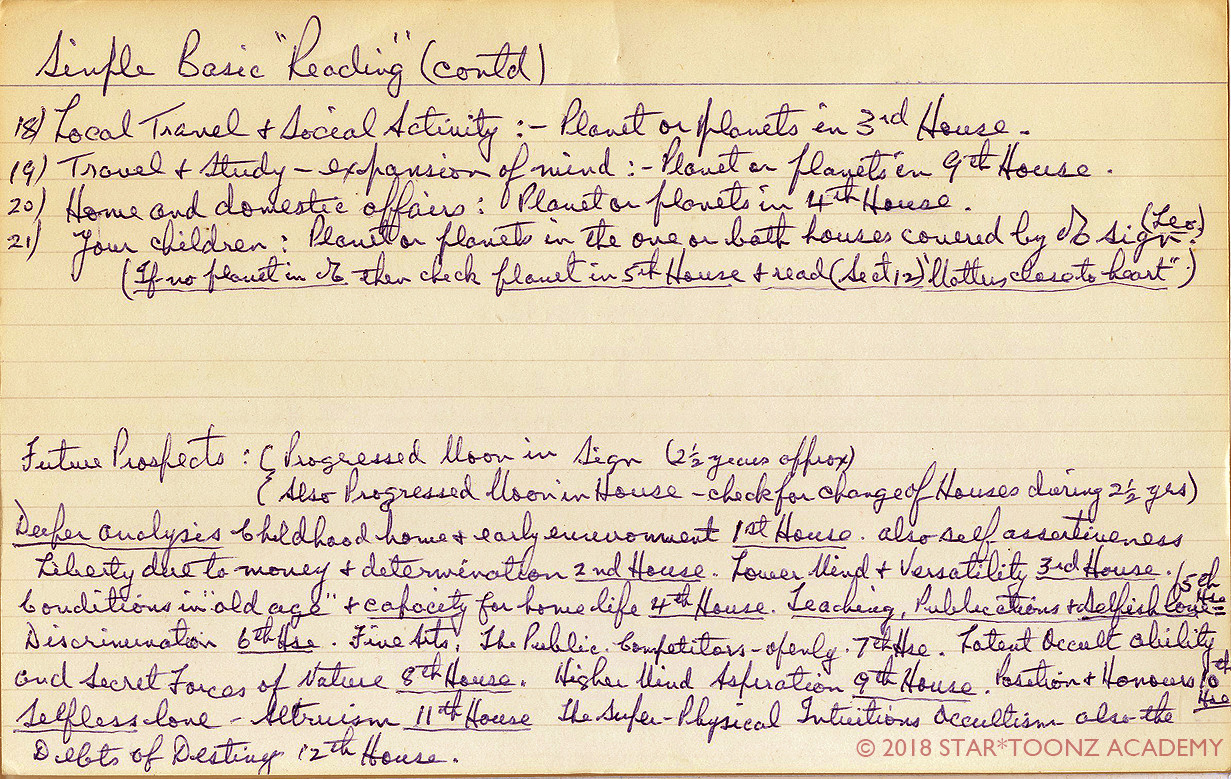 Simple Basic "Reading" (contd)
18) Local Travel & Social Activity :- Planet or planets in 3rd House.
19) Travel & Study - expansion of mind :- Planet or planets in 9th House.
20) Home and domestic affairs : Planet or planets in 4th House.
21) Your children : Planet or planets in the one or both houses covered by ♌ sign. (Leo)
(If no planet in ♌ then check planet in 5th House & read (Sect 12) "Matters close to heart".)
Future Prospects : ( Progressed Moon in Sign (2½ years approx)
( Also Progressed Moon in House - check for change of Houses during 2½ yrs)
Deeper analysis Childhood home & early environment 1st House. also self assertiveness
Liberty due to money & determination 2nd House. Lower Mind & Versatility 3rd House.
Conditions in "old age" & capacity for home life 4th House. Teaching, Publications & selfish love 5th Hse
Discrimination 6th Hse. Fine Arts, The Public. Competitors - openly. 7th Hse. Latent Occult ability
and Secret Forces of Nature 8th House. Higher Mind Aspiration 9th House. Position & Honours 10th Hse
Selfless love - Altruism 11th House The Super-Physical Intuitions Occultism also the
Debts of Destiny 12th House.
© 2018 STAR*TOONZ ACADEMY